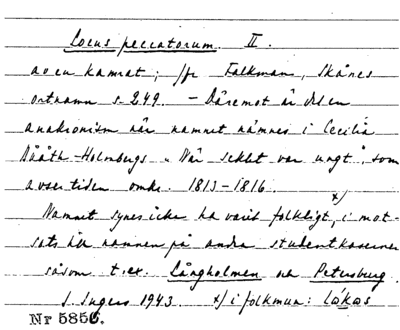 Locus peccatorum. II.
av en kamrat; jfr Falkman, Skånes
ortnamn s. 249. – Däremot är det en
anakronism när namnet nämnes i Cecilia
Bååth-Holmbergs "När seklet var ungt", som
avser tiden omkr. 1813–1816.
Namnet synes icke ha varit folkligt, x) i mot-
sats till namnen på andra studentkaserner
såsom t.ex. Långholmen och Petersburg.
S. Ingers 1943. x) i folkmun: Lókas
Nr 5856.